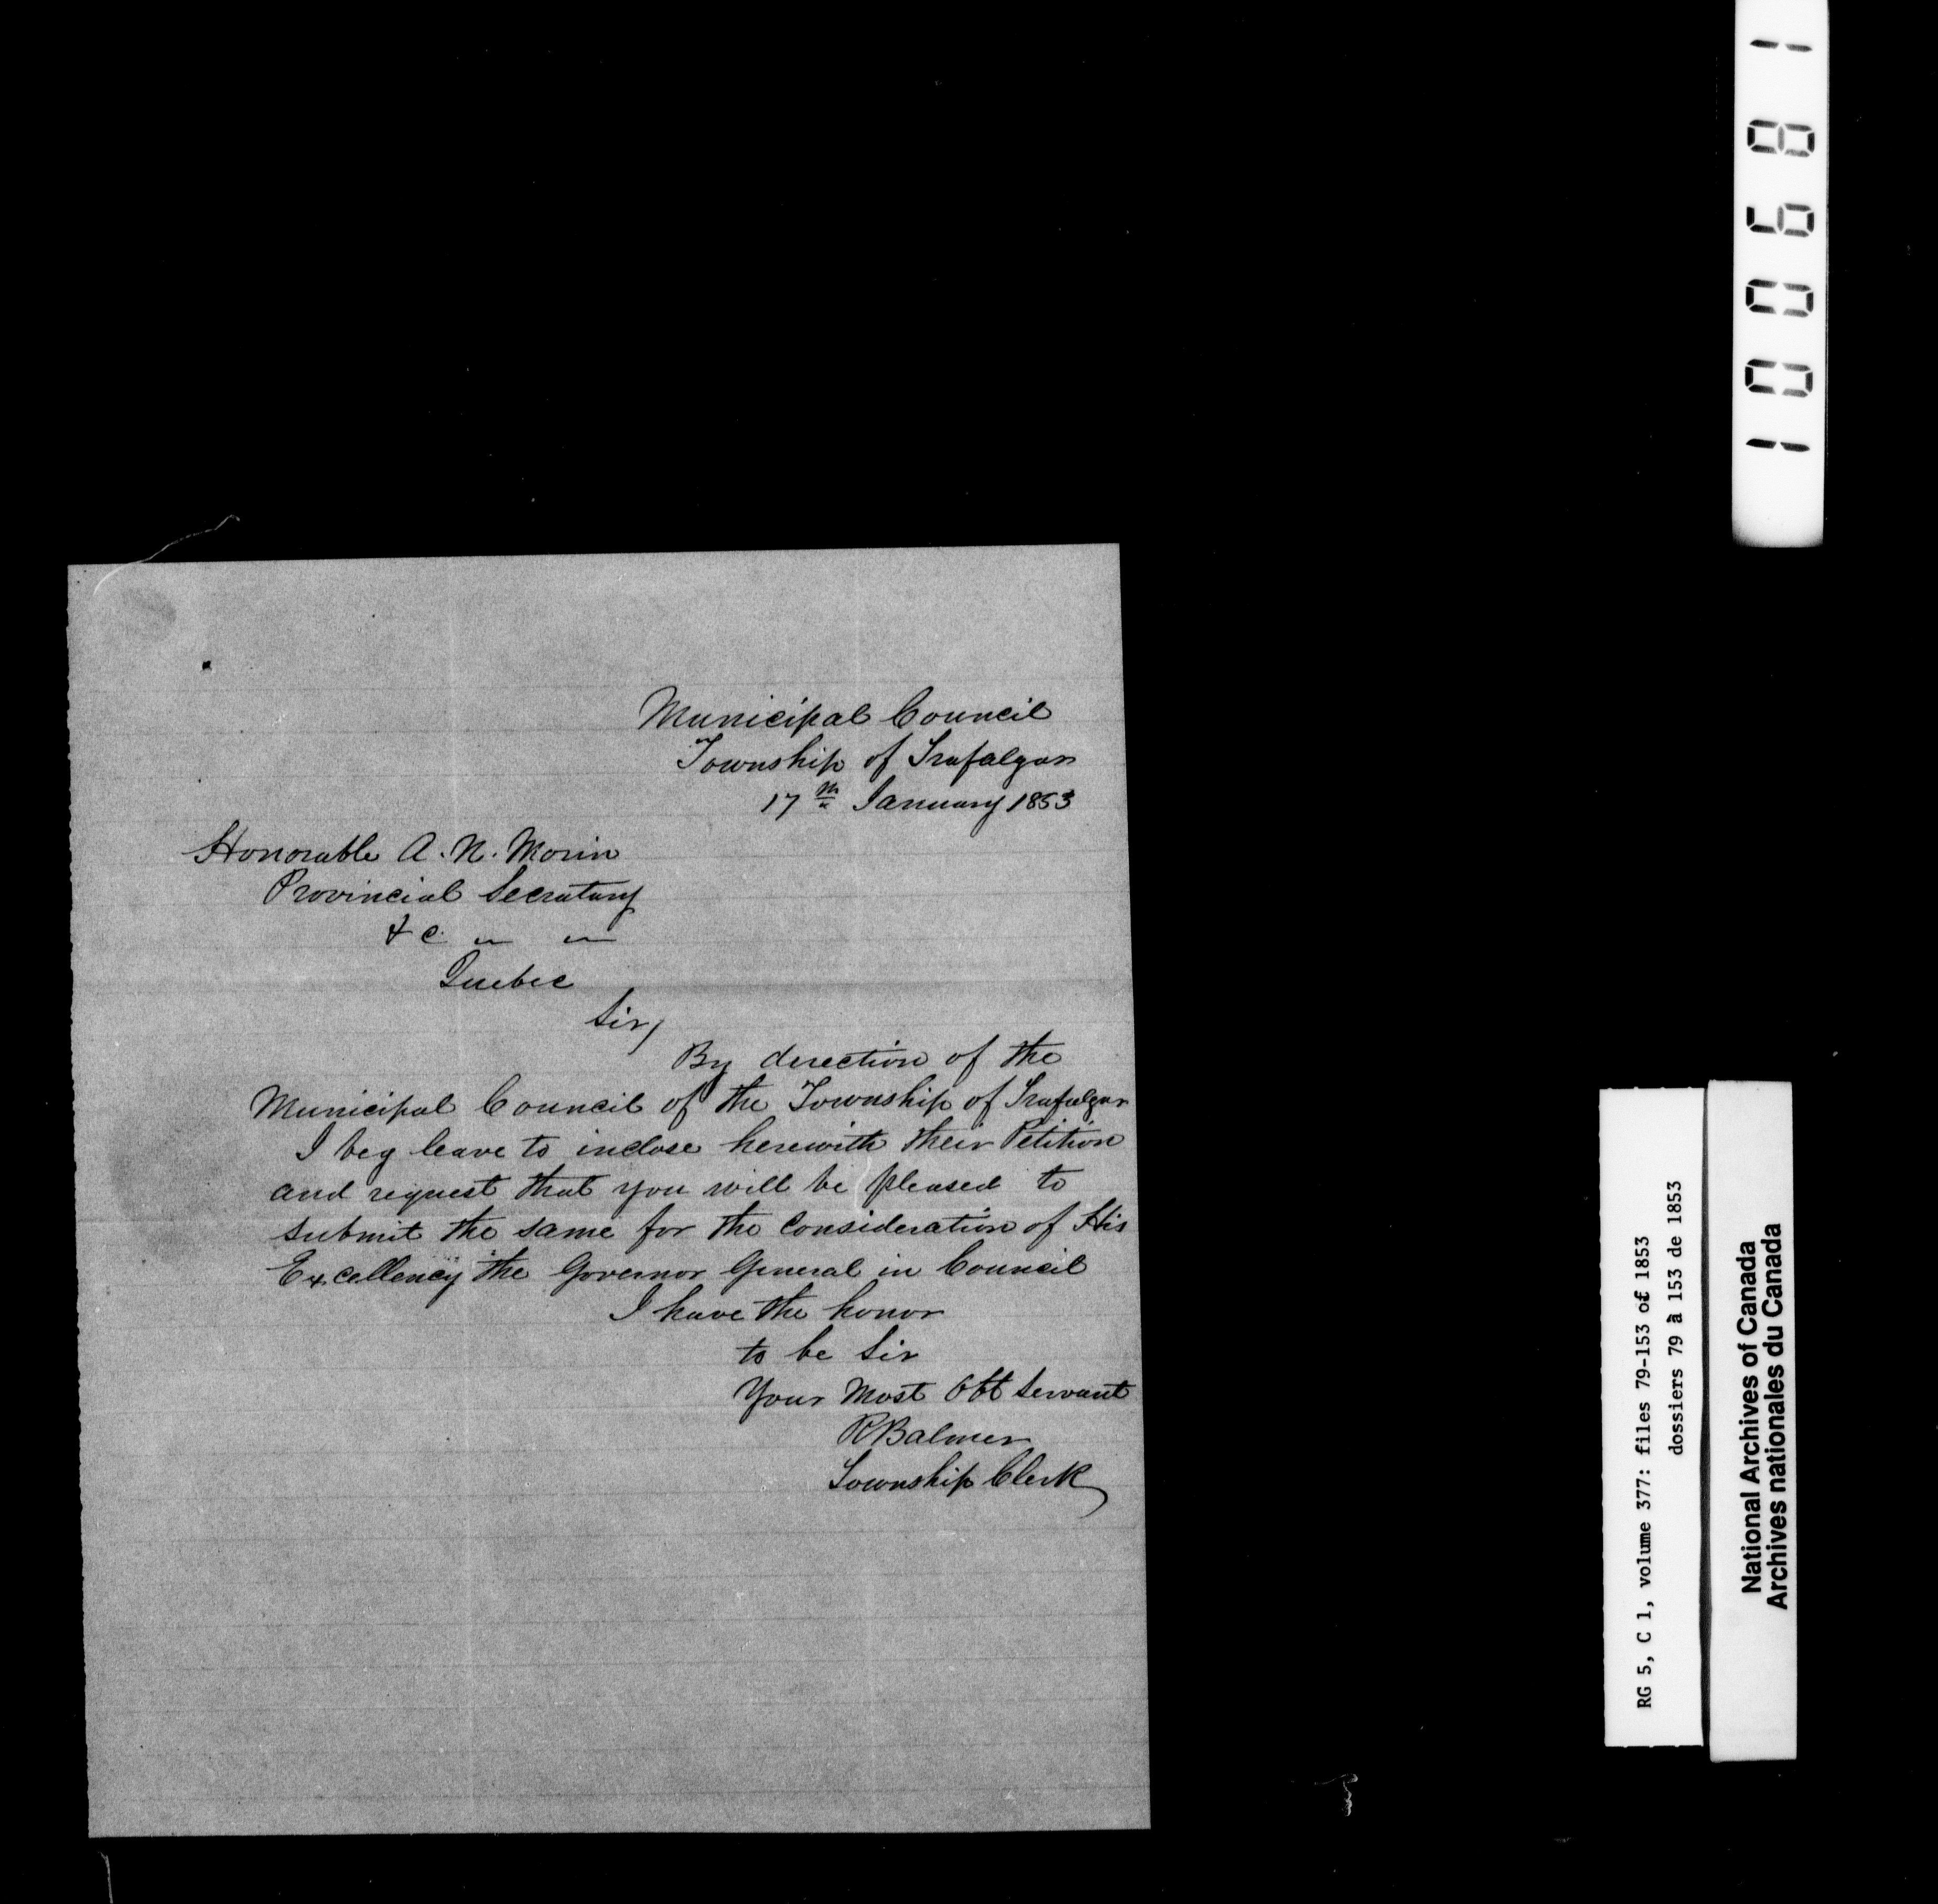 Municipal Council
Township of Trafalgar
17th January 1853
Honorable A. N. Morin
Provincial Secretary
& c. " "
Quebec
Sir,
By direction of the
Municipal Council of the Township of Trafalgar
I beg leave to inclose herewith their Petition
and request that you will be pleased to
submit the same for the Consideration of His
Excellency the Governor General in Council
I have the honor
to be Sir
Your Most Obt Servant
R Balmer
Township Clerk
100681
RG 5, C 1, volume 377: files 79-153 of 1853
dossiers 79 à 153 de 1853
National Archives of Canada
Archives nationales du Canada